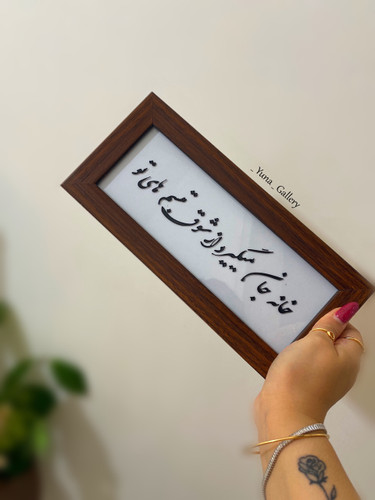 خانه جان میگیرد از شوق قدم های تو
_ Yuna _ Gallery